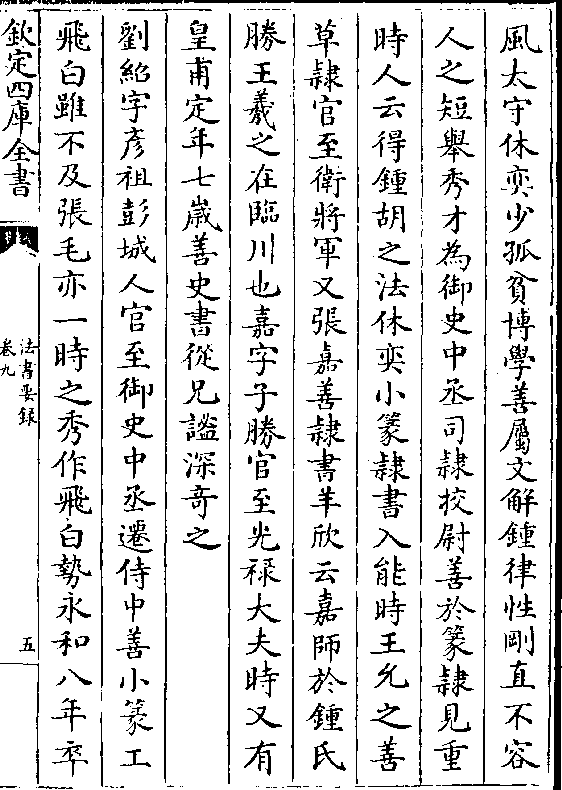 風太守休奕少孤貧博學善屬文解鍾律性剛直不容
人之短舉秀才為御史中丞司隸挍尉善於篆隸見重
時人云得鍾胡之法休奕小篆隸書入能時王允之善
草隸官至衛將軍又張嘉善隸書羊欣云嘉師於鍾氏
勝王羲之在臨川也嘉字子勝官至光禄大夫時又有
皇甫定年七嵗善史書從兄謐深竒之
劉紹字彥祖彭城人官至御史中丞遷侍中善小篆工
飛白雖不及張毛亦一時之秀作飛白勢永和八年卒
欽定四庫全書
法書要錄
卷九
五